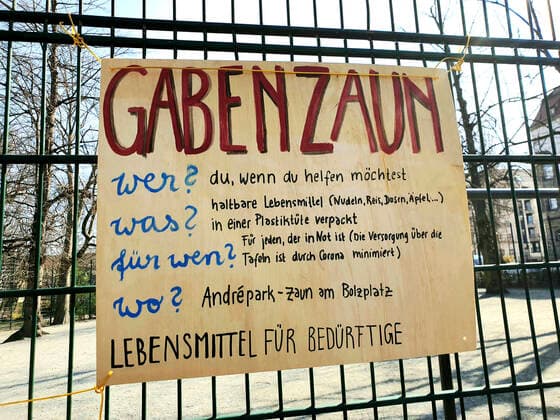 GABENZAUN
wer? du, wenn du helfen möchtest
was? haltbare Lebensmittel (Nudeln, Reis, Dosen, Äpfel,...)
in einer Plastiktüte verpackt
für wen? Für jeden, der in Not ist (Die Versorgung über die
Tafeln ist durch Corona minimiert)
wo? Andrépark-Zaun am Bolzplatz
LEBENSMITTEL FÜR BEDÜRFTIGE